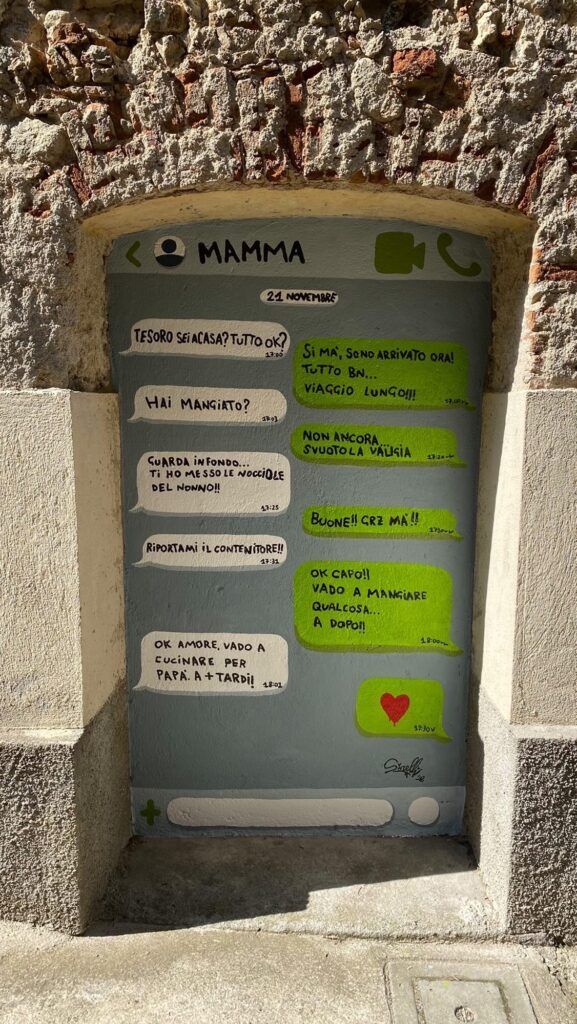 MAMMA
21 NOVEMBRE
TESORO SEI A CASA? TUTTO OK?
17:00
SI MÀ, SONO ARRIVATO ORA!
TUTTO BN...
VIAGGIO LUNGO!!!
HAI MANGIATO?
17:03
NON ANCORA...
SVUOTO LA VALIGIA
17:20
GUARDA IN FONDO...
TI HO MESSO LE NOCCIOLE
DEL NONNO!!
17:25
BUONE!! GRZ MÀ!!
RIPORTAMI IL CONTENITORE!!
17:31
OK CAPO!!
VADO A MANGIARE
QUALCOSA...
A DOPO!!
18:00
OK AMORE, VADO A
CUCINARE PER
PAPÀ. A + TARDI!
18:01
17:30